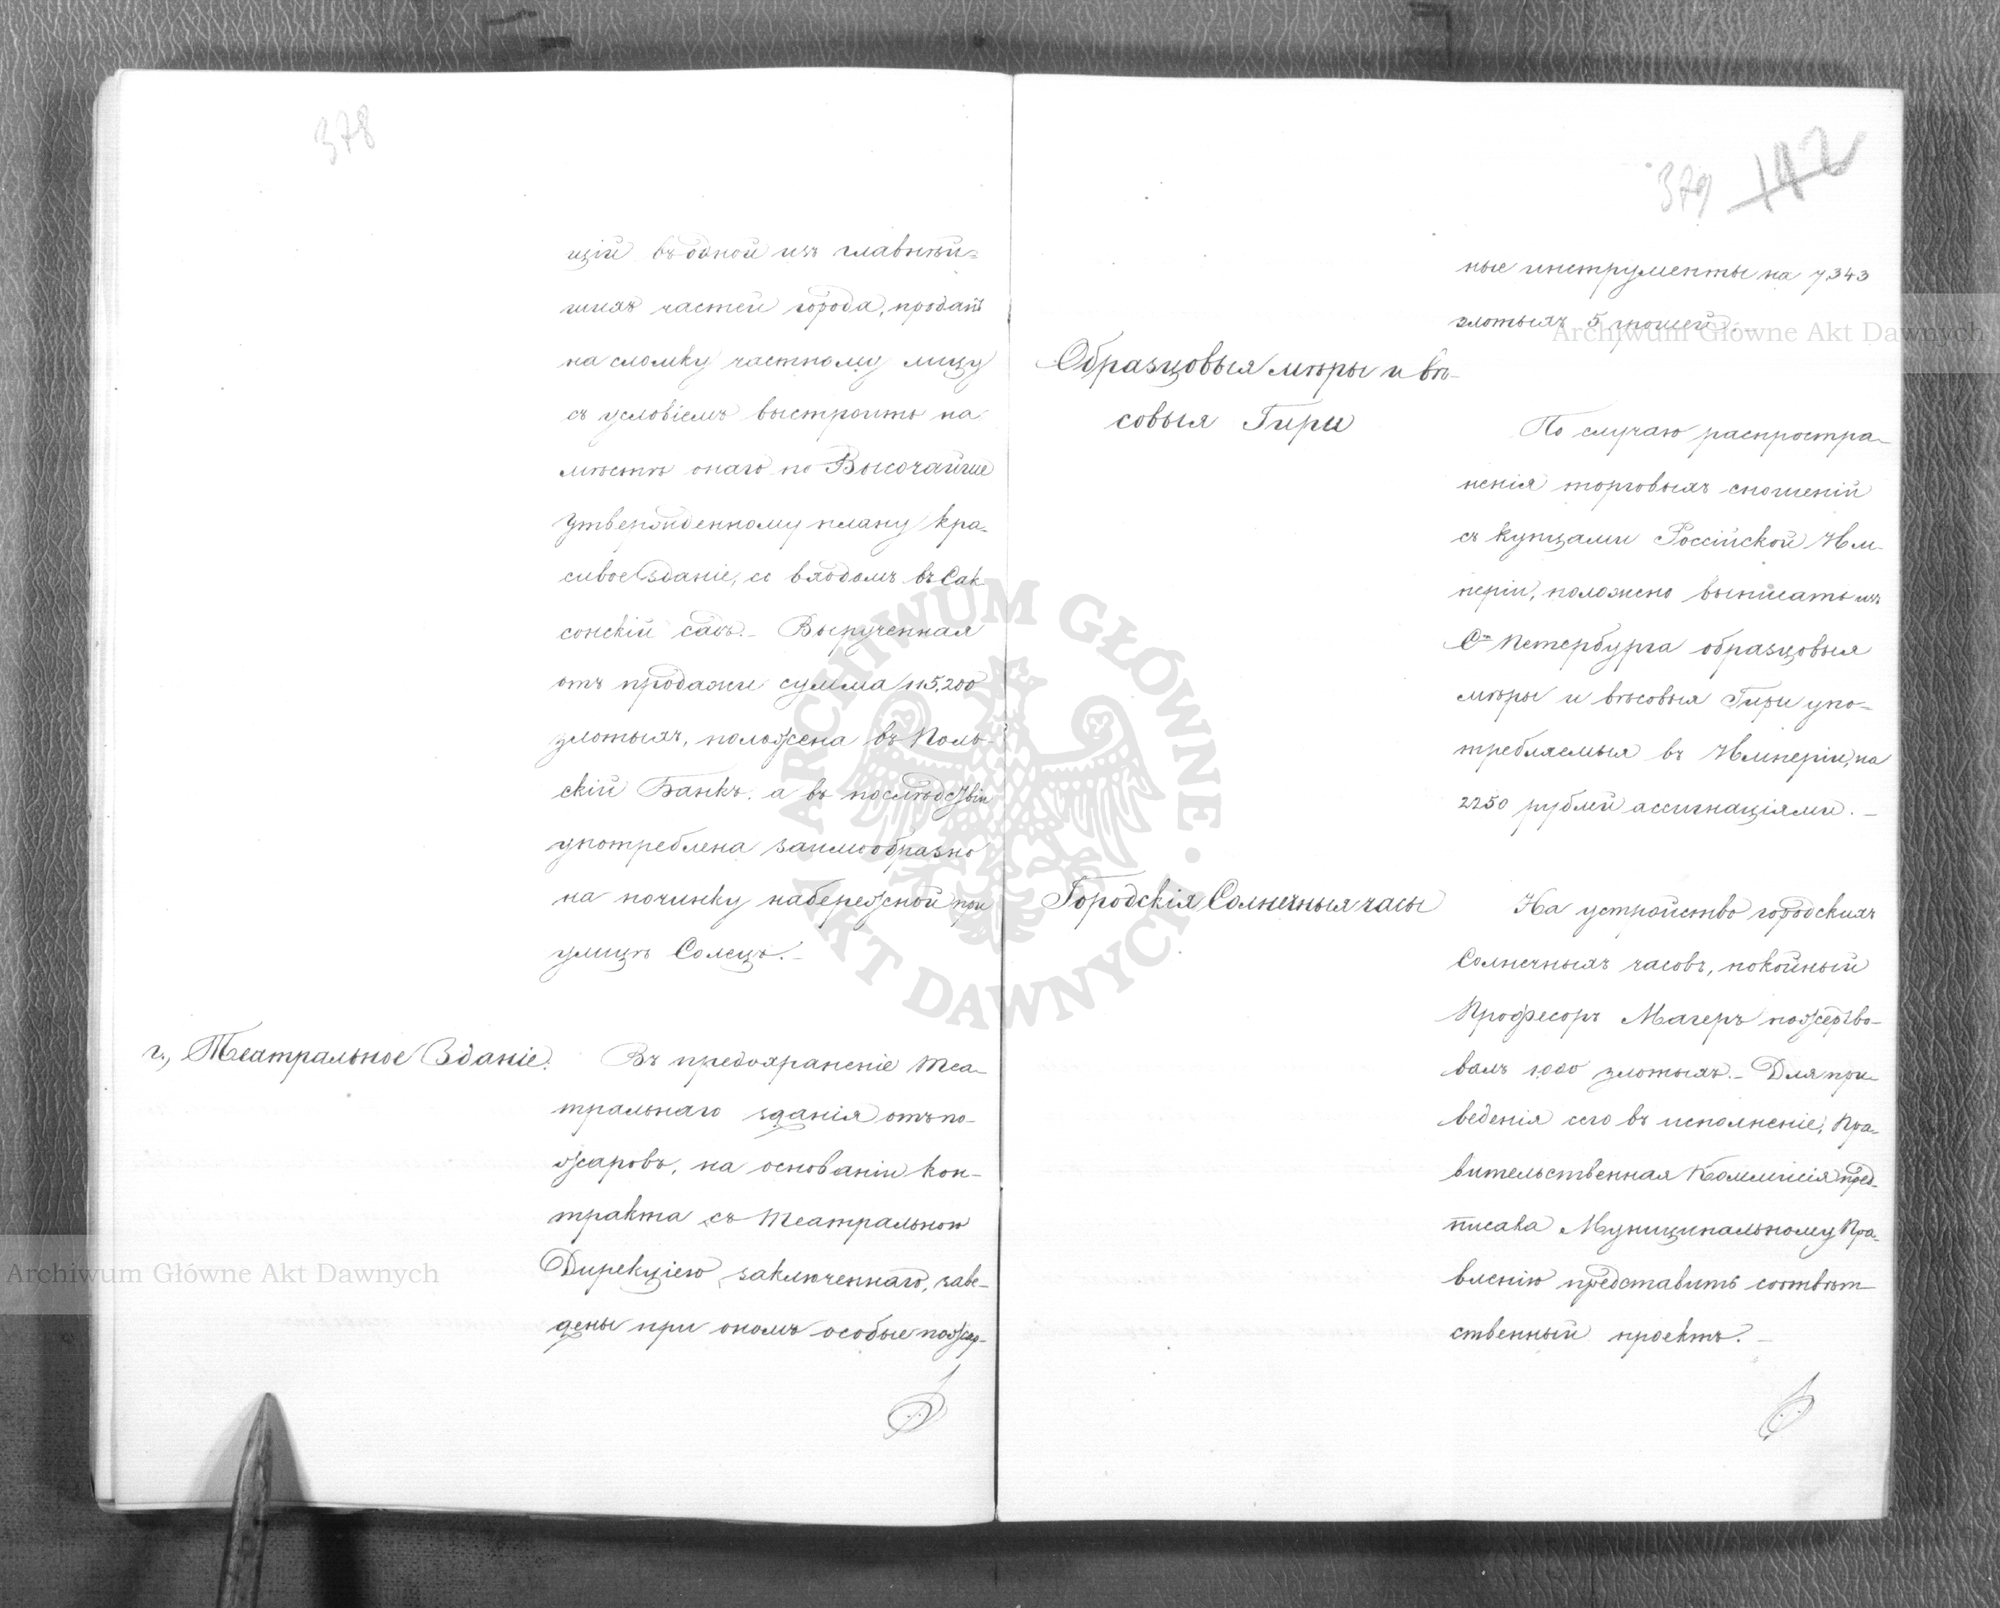 378
щій въ одной изъ главнѣй-
шихъ частей города, проданъ
на сломку частному лицу
съ условіемъ выстроить на
мѣстѣ онаго по Высочайше
утвержденному плану кра-
сивое зданіе, со входомъ въ Сак
сонскій садъ. – Вырученная
отъ продажи сумма 115,200
злотыхъ, положена въ Поль-
скій Банкъ, а въ послѣдствіи
употреблена заимообразно
на починку набережной при
улицѣ Солецъ. –
г., Театральное Зданіе.
Въ предохраненіе Теа-
тральнаго зданія отъ по-
жаровъ, на основаніи кон-
тракта съ Театральною
Дирекціею заключеннаго, заве-
дены при ономъ особые пожар-
379 142
ные инструменты на 7,343
злотыхъ 5 грошей. –
Образцовыя мѣры и вѣ-
совыя Гири
По случаю распростра-
ненія торговыхъ сношеній
съ купцами Россійской Им-
періи, положено выписать изъ
Ст Петербурга образцовыя
мѣры и вѣсовыя Гири упо-
требляемыя въ Имперіи, на
2250 рублей ассигнаціями. –
Городскія Солнечныя часы
На устройство городскихъ
Солнечныхъ часовъ, покойный
Професоръ Магеръ пожертво-
валъ 1,000 злотыхъ. – Для при-
веденія сего въ исполненіе, Пра-
вительственная Коммисія пред-
писала Муниципальному Пра-
вленію представить соотвѣт
ственный проектъ. –
Archiwum Główne Akt Dawnych
Archiwum Główne Akt Dawnych
ARCHIWUM GŁÓWNE AKT DAWNYCH